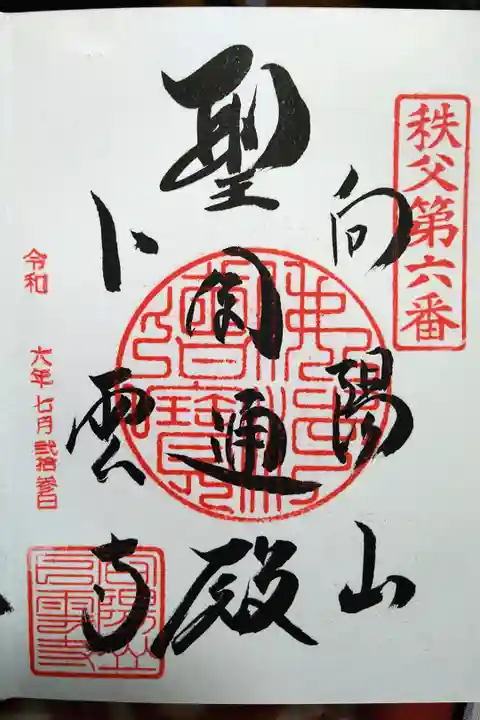 秩父第六番
向陽山
聖円通殿
卜雲寺
令和 六年七月弐拾参日